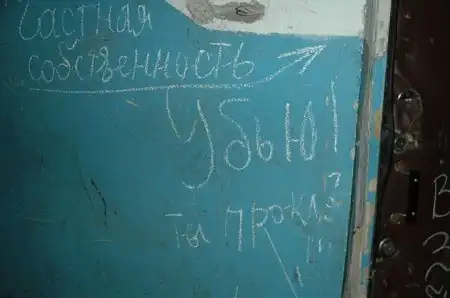 Частная
собственность
Убью!
ты прокл
В